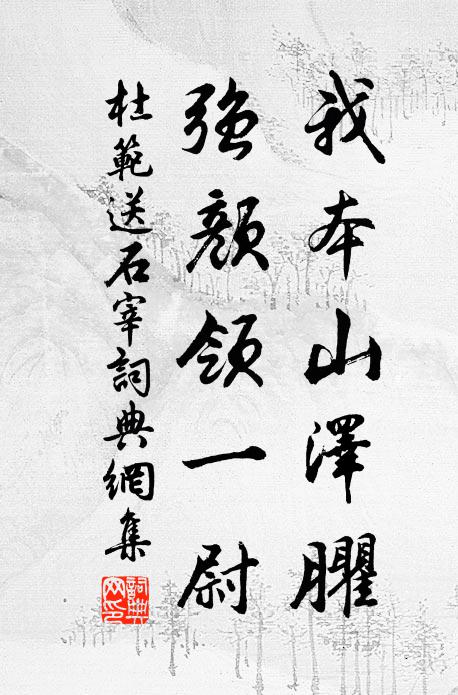 我本山澤臞
強顏領一尉
杜範送石宰詞典網集
詞典網印